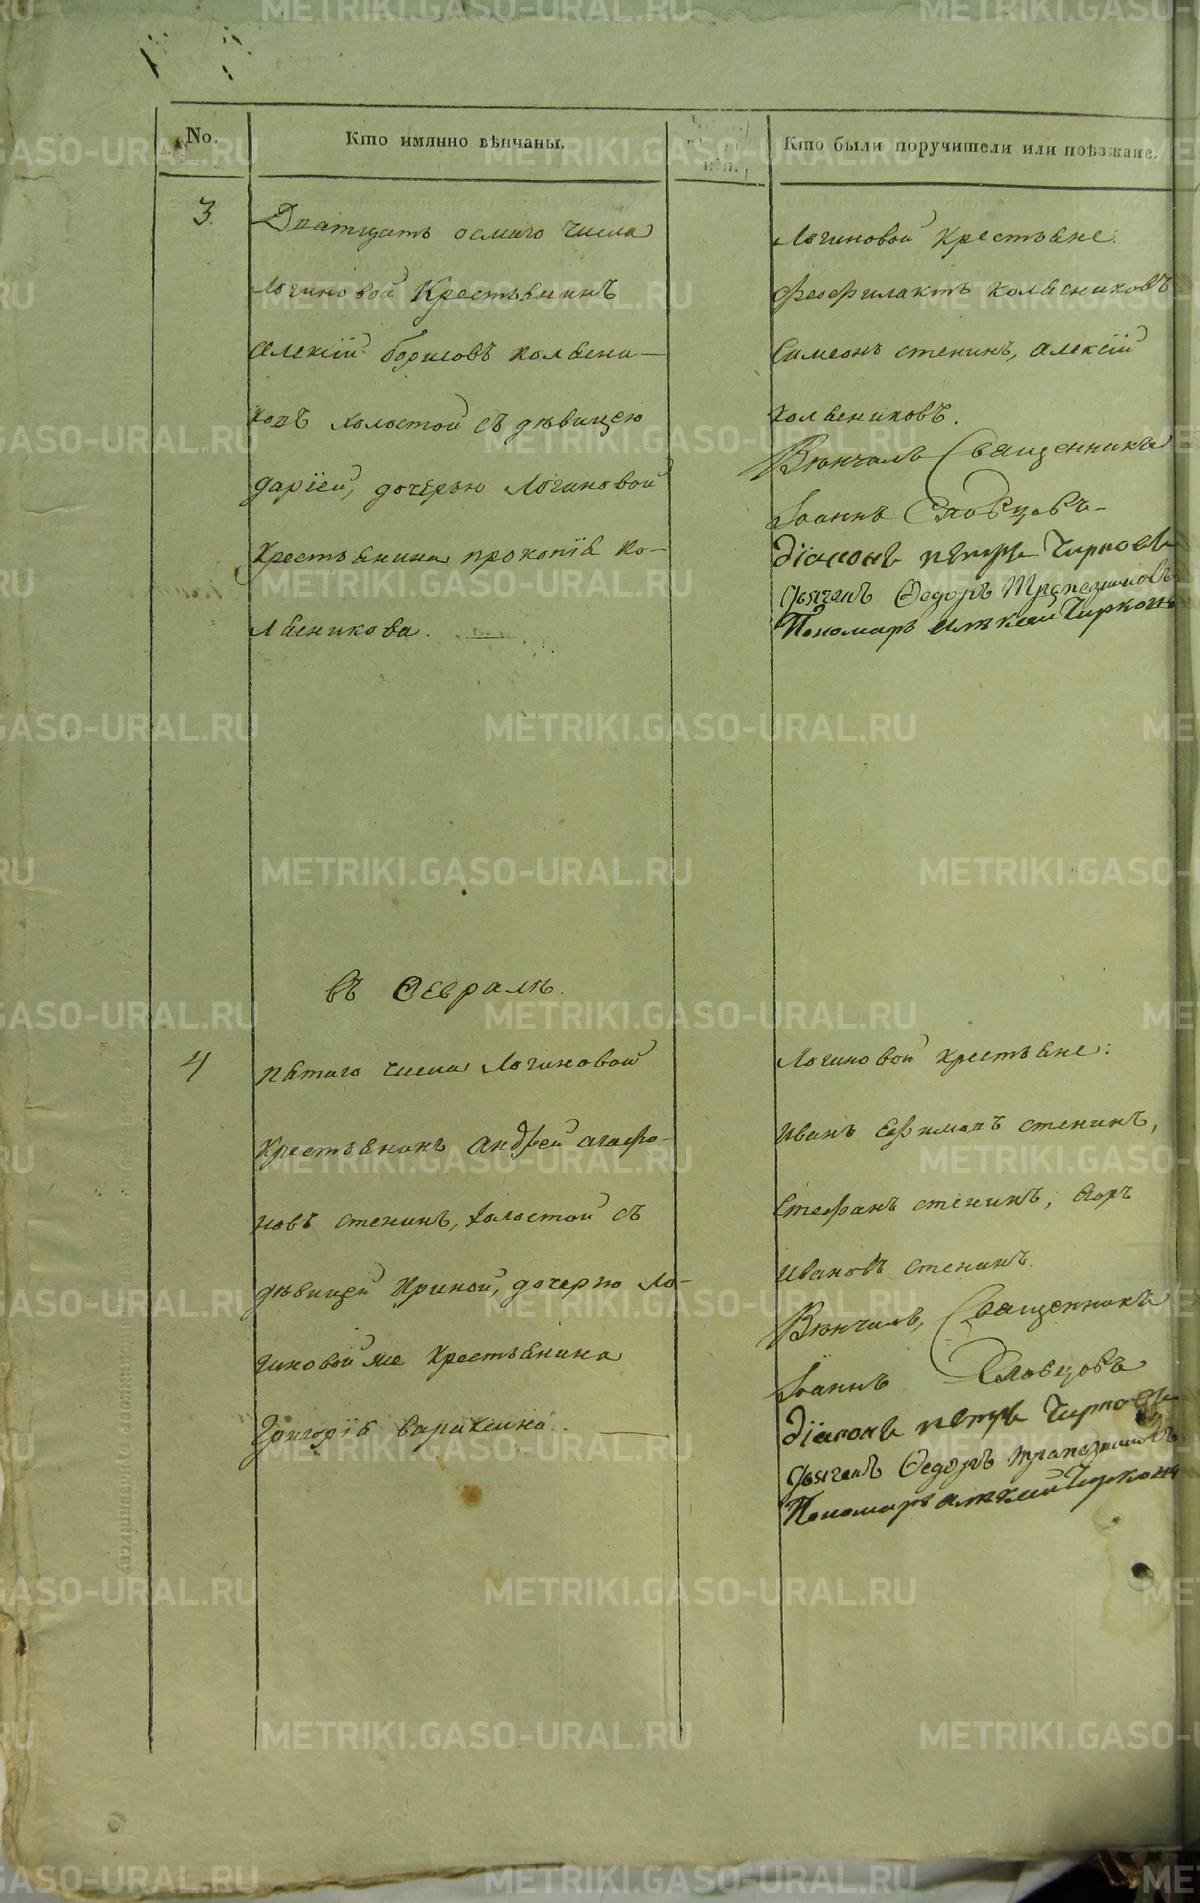 No.
Кто имянно вѣнчаны.
Кто были поручители или поѣзжане.
3.
Дватцать осмаго числа
Логиновой Крестьянинъ
Алексій борисовъ колѣсни-
ковъ холостой съ дѣвицею
даріей, дочерью Логиновой
Крестьянина прокопія ко-
лѣсникова.
Логиновой крестьяне:
Феофилактъ колѣсниковъ
Симеонъ стенинъ, алексій
колѣсниковъ.
Вѣнчалъ Священникъ
Іоаннъ Словцовъ
Діаконъ петръ Чирковъ
Федоръ Трапезниковъ
Пономарь алексей Чирковъ
въ Февралѣ.
4
пятаго числа Логиновой
крестьянинъ андрей агафо-
новъ стенинъ, холостой съ
дѣвицей Ириной, дочерью Ло-
гиновой же Крестьянина
Григорія Вараксина.
Логиновой крестьяне:
Иванъ Ефимовъ стенинъ,
Стефанъ стенинъ, Егоръ
Ивановъ стенинъ.
Вѣнчалъ, Священникъ
Іоаннъ Словцовъ
Діаконъ петръ Чирковъ
Федоръ Трапезниковъ
Пономарь алексей Чирковъ
METRIKI.GASO-URAL.RU